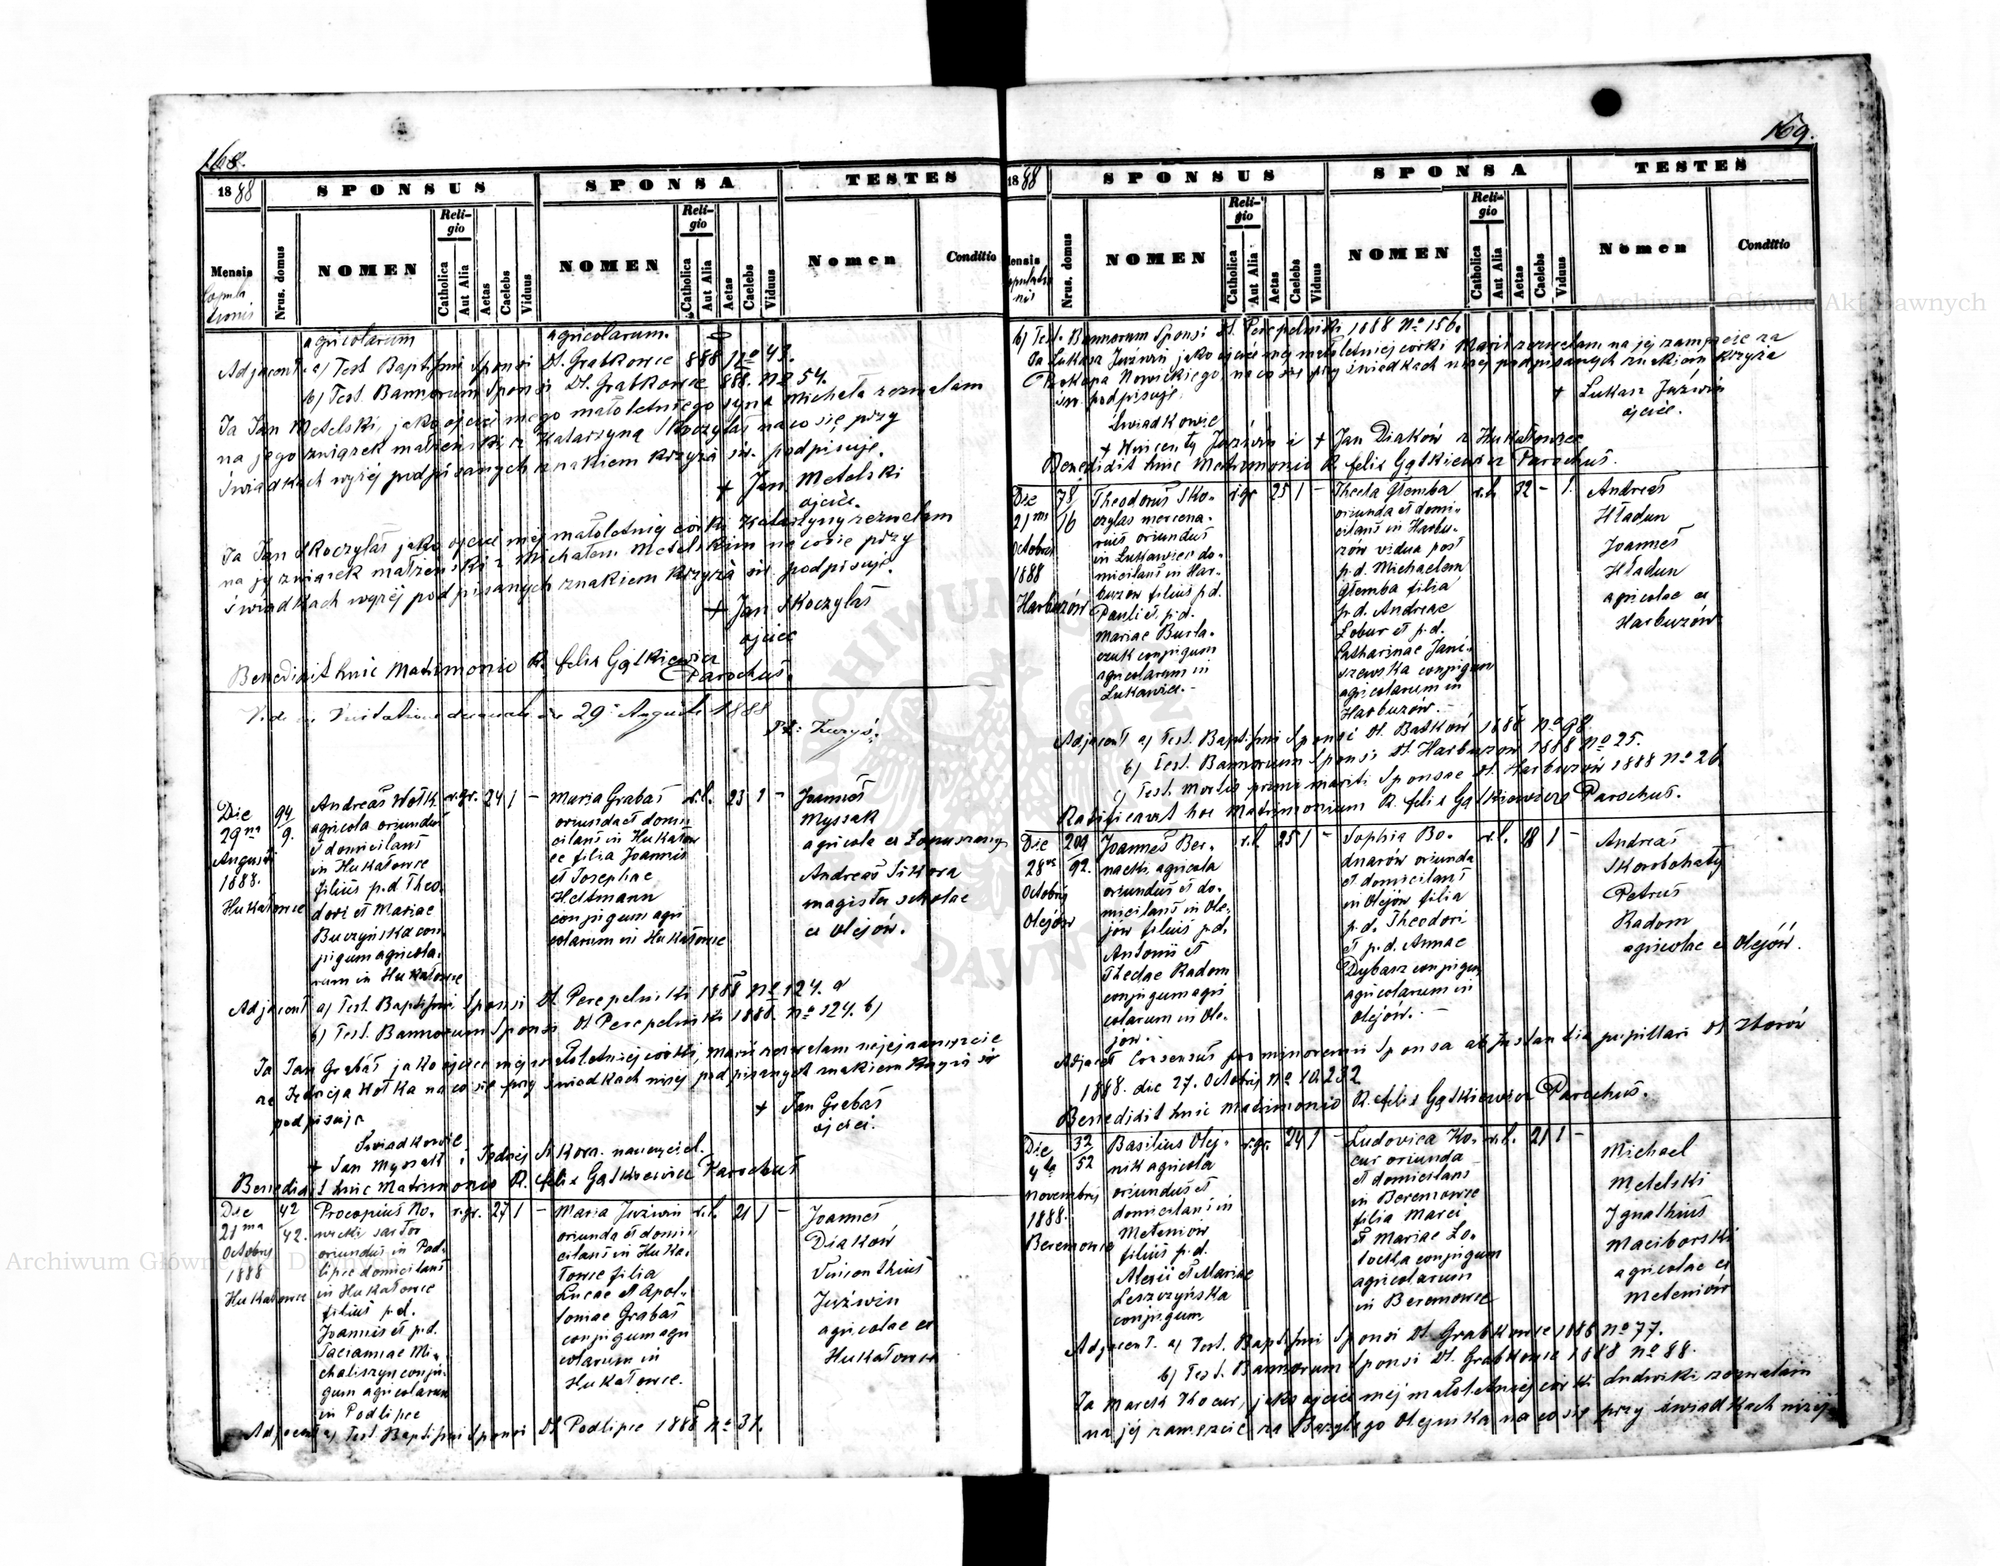 168.
1888
SPONSUS
SPONSA
TESTES
Mensis
Copulationis
Nrus. domus
NOMEN
Religio
Catholica
Aut Alia
Aetas
Caelebs
Viduus
NOMEN
Religio
Catholica
Aut Alia
Aetas
Caelebs
Viduus
Nomen
Conditio
agricolarum
agricolarum.
Adjacent a) Test Baptismi Sponsi Dt. Grabkowce 888 No 43.
b) Test. Bannorum Sponsi Dt. Grabkowce 888. No 54.
Ja Jan Metelski, jako ojciec mego małoletniego syna Michała zeznalam
na jego związek małżeński z Katarzyną Skoczylas na co się przy
świadkach wyżej podpisanych znakiem krzyża św. podpisuję.
+ Jan Metelski
ojciec.
Ja Jan Skoczylas jako ojciec mej małoletniej córki Katarzyny zeznalam
na jej związek małżeński z Michałem Metelskim na co się przy
świadkach wyżej podpisanych znakiem krzyża św. podpisuję.
+ Jan Skoczylas
ojciec
Benedixit huic Matrimonio R. Felix Gątkiewicz
Parochus.
29 Augusti 1888
Die
29na
Augusti
1888.
Hukałowce
94
9.
Andreas Wołk
agricola oriundus
et domicilans
in Hukałowce
filius p.d. Theo-
dori et Mariae
Buczyńska con-
jugum agricola-
rum in Hukałowce
r.gr. 24 1 –
Maria Grabas
oriunda et domi-
cilans in Hukałow
ce filia Joannis
et Josephae
Heltmann
conjugum agri
colarum in Hukałowce
r.l. 23 1 –
Joannes
Myssak
agricola ex Łopuszany
Andreas Sikora
magister scholae
ex Olejów.
Adjacent a) Test. Baptismi Sponsi Dt Perepelniki 1888 No 124. a
b) Test. Bannorum Sponsi Dt Perepelniki 1888. No 124. b)
Ja Jan Grabas jako ojciec mej małoletniej córki Marii zezwalam na jej zamęście
za Jędrzeja Wołka na co się przy świadkach niżej podpisanych znakiem krzyża św
podpisuję
+ Jan Grabas
ojciec.
Świadkowie
+ Jan Myssak i Jędrzej Sikora. nauczyciel.
Benedixit huic Matrimonio R. Felix Gątkiewicz Parochus
Die
21ma
Octobris
1888
Hukałowce
42
42.
Procopius No-
wicki sartor
oriundus in Pod-
lipce domicilans
in Hukałowce
filius p.d.
Joannis et p.d.
Tacianae Mi-
chaliszyn conju-
gum agricolarum
in Podlipce
r.gr. 27 1 –
Maria Juzwin
oriunda et domi-
cilans in Huka-
łowce filia
Lucae et Apol-
loniae Grabas
conjugum agri
colarum in
Hukałowce.
r.l. 21 1 –
Joannes
Diaków
Vincenthius
Juźwin
agricolae ex
Hukałowce
Adjacent a) Test Baptismi Sponsi Dt Podlipce 1888 No 31.
169.
1888
SPONSUS
SPONSA
TESTES
Mensis
Copulationis
Nrus. domus
NOMEN
Religio
Catholica
Aut Alia
Aetas
Caelebs
Viduus
NOMEN
Religio
Catholica
Aut Alia
Aetas
Caelebs
Viduus
Nomen
Conditio
b) Test. Bannorum Sponsi Dt. Perepelniki 1888 No 156.
Ja Łukasz Juzwin jako ojciec mej małoletniej córki Marii zezwalam na jej zamęście za
Prokopa Nowickiego, na co się przy świadkach niżej podpisanych znakiem krzyża
św. podpisuję.
+ Łukasz Juźwin
ojciec.
Świadkowie
+ Wincenty Juźwin i + Jan Diaków z Hukałowiec
Benedixit huic Matrimonio R. Felix Gątkiewicz Parochus.
Die
21ma
Octobris
1888
Harbuzów
78
16
Theodorus Sko-
czylas mercena-
rius oriundus
in Lukawiec do-
micilans in Har-
buzow filius p.d.
Pauli et p.d.
Mariae Burla-
czuk conjugum
agricolarum in
Lukawiec.
r.gr 25 1 –
Thecla Głemba
oriunda et domi-
cilans in Harbu-
zow vidua post
p.d. Michaelem
Głemba filia
p.d. Andreae
Łobur et p.d.
Catharinae Jani-
szewska conjugum
agricolarum in
Harbuzów.
r.l. 32 – 1.
Andreas
Hładun
Joannes
Hładun
agricolae ex
Harbuzów
Adjacent a) Test. Baptismi Sponsi Dt. Batków 1888 No 98.
b) Test. Bannorum Sponsi Dt Harbuzów 1888 No 25.
c) Test. Mortis primi mariti Sponsae Dt. Harbuzów 1888 No 26
Ratificavit hoc Matrimonium R. Felix Gątkiewicz Parochus.
Die
28va
Octobris
Olejów
209
92.
Joannes Ber-
nacki agricola
oriundus et do-
micilans in Ole-
jów filius p.d.
Antonii et
Theclae Radom
conjugum agri
colarum in Ole-
jow.
r.l. 25 1 –
Sophia Bo-
dnarów oriunda
et domicilans
in Olejow filia
p.d. Theodori
et p.d. Annae
Dybasz conjugum
agricolarum in
Olejów.
r.l. 18 1 –
Andreas
Skorobohaty
Petrus
Radom
agricolae ex Olejów.
Adjacet Consensus pro minorenni Sponsa ab Instantia pupillari Dt Zborów
1888. die 27. Octobris No 10232
Benedixit huic Matrimonio R. Felix Gątkiewicz Parochus.
Die
4ta
Novembris
1888.
Beremowce
32
52
Basilius Olej-
nik agricola
oriundus et
domicilans in
Meteniów
filius p.d.
Alexii et Mariae
Leszczyńska
conjugum
r.gr. 24 1 –
Ludovica Ko-
cur oriunda
et domicilans
in Beremowce
filia Marci
et Mariae Ło-
tocka conjugum
agricolarum
in Beremowce
r.l. 21 1 –
Michael
Metelski
Ignathius
Maciborski
agricolae ex
Meteniów
Adjacent. a) Test. Baptismi Sponsi Dt. Grabkowce 1888 No 77.
b) Test. Bannorum Sponsi Dt. Grabkowce 1888 No 88.
Ja Marek Kocur, jako ojciec mej małoletniej córki Ludwiki zezwalam
na jej zamęzcie za Bazylego Olejnika na co się przy świadkach niżej
Archiwum Główne Akt Dawnych
Archiwum Główne Akt Dawnych